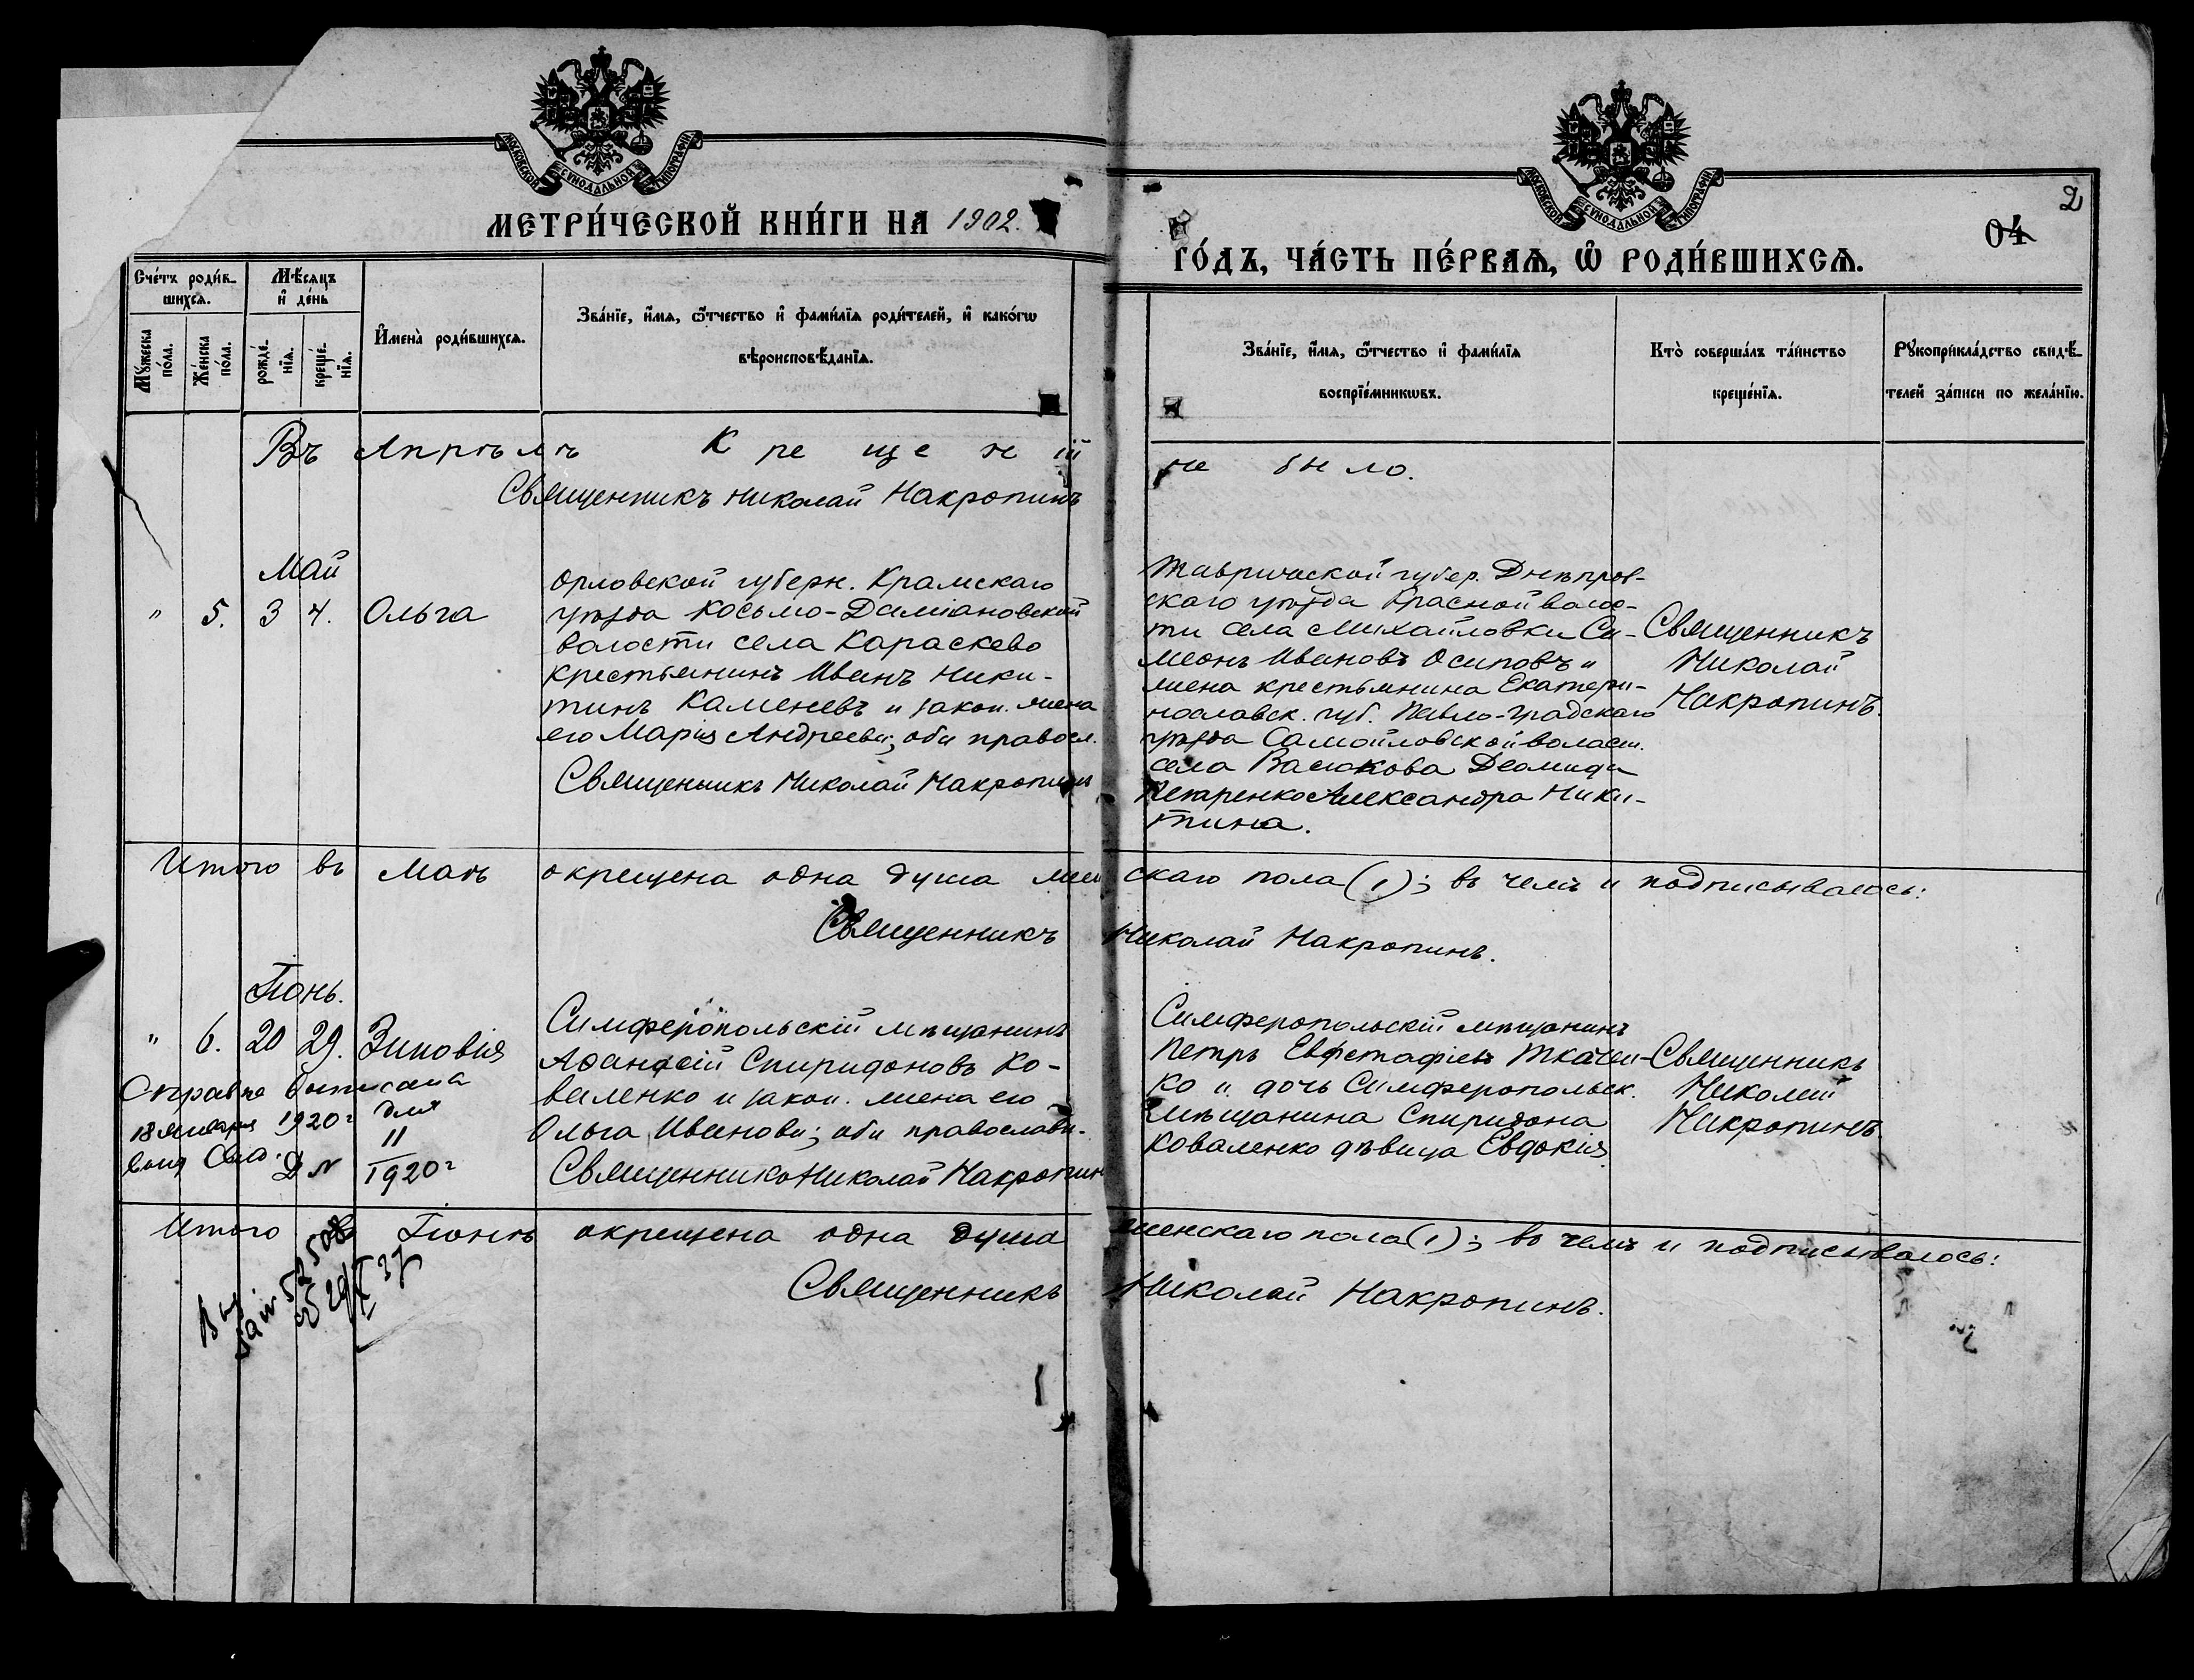 МОСКОВСКОЙ СѴНОДАЛЬНОЙ ТИПОГРАФІИ
МОСКОВСКОЙ СѴНОДАЛЬНОЙ ТИПОГРАФІИ
МЕТРИ́ЧЕСКОЙ КНИ́ГИ НА 1902.
2
04
ГО́ДЪ, ЧА́СТЬ ПЕ́РВАѦ, Ѡ҆ РОДИ́ВШИХСѦ.
Сче́тъ роди́в-
шихсѧ.
Мѣ́сѧцъ
и҆ де́нь
Мꙋ́жеска
по́ла.
Же́нска
по́ла.
рожде́-
нїѧ.
креще́-
нїѧ.
И҆мена̀ роди́вшихсѧ.
Зва́нїе, и҆́мѧ, ѻ҆́тчество и҆ фами́лїѧ роди́телей, и҆ како́гѡ
вѣроисповѣ́данїѧ.
Зва́нїе, и҆́мѧ, ѻ҆́тчество и҆ фами́лїѧ
воспрїе́мникѡвъ.
Кто̀ соверша́лъ та́инство
креще́нїѧ.
Рꙋкоприкла́дство свидѣ́-
телей за́писи по жела́нїю.
Въ Апрѣлѣ Крещеній не было.
Священникъ Николай Накропинъ
Май
" 5. 3 4. Ольга
Орловской губерн. Крамскаго
уѣзда Косьмо-Даміановской
волости села Караскево
крестьянинъ Иванъ Ники-
тинъ Каменевъ и закон. жена
его Марія Андреева; оба правосл.
Священникъ Николай Накропинъ
Таврической губер. Днѣпров-
скаго уѣзда Красной волос-
ти села Михайловки Си-
меонъ Ивановъ Осиповъ и
жена крестьянина Екатери-
нославск. губ. Павло-градскаго
уѣзда Самойловской волост.
села Васюкова Деомида
Петренко Александра Ники-
тина.
Священникъ
Николай
Накропинъ.
Итого въ Маѣ окрещена одна душа женскаго пола (1); въ чемъ и подписываюсь:
Священникъ Николай Накропинъ.
Іюнь.
" 6. 20 29. Зиновія
Справка выписана
18 января 1920 г для
II
Д N 1920 г
Симферопольскій мѣщанинъ
Аѳанасій Спиридоновъ Ко-
валенко и закон. жена его
Ольга Иванова; оба православн.
Священникъ Николай Накропин
Симферопольскій мѣщанинъ
Петръ Евстафіевъ Ткачен-
ко и дочь Симферопольск.
мѣщанина Спиридона
Коваленко дѣвица Евдокія.
Священникъ
Николай
Накропинъ
Итого Іюнѣ окрещена одна душа женскаго пола (1); въ чемъ и подписываюсь:
Священникъ Николай Накропинъ.